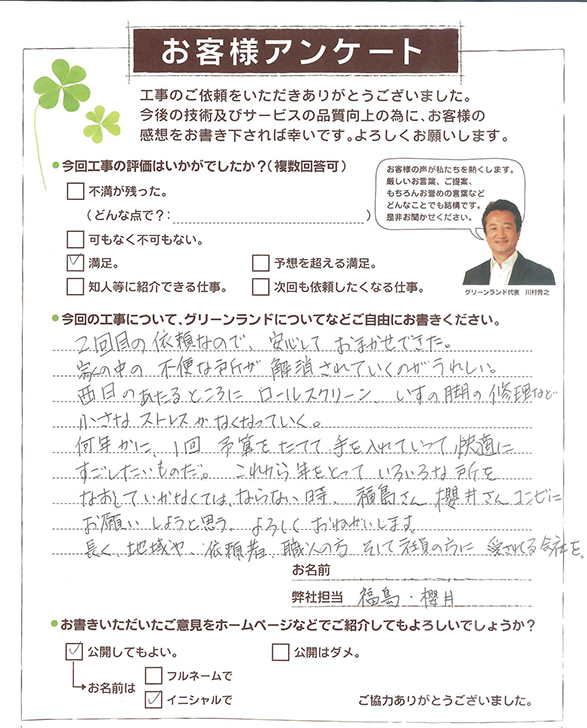 お客様アンケート
工事のご依頼をいただきありがとうございました。
今後の技術及びサービスの品質向上の為に、お客様の
感想をお書き下されば幸いです。よろしくお願いします。
●今回工事の評価はいかがでしたか？（複数回答可）
お客様の声が私たちを熱くします。
厳しいお言葉、ご提案、
もちろんお誉めの言葉など
どんなことでも結構です。
是非お聞かせください。
グリーンランド代表 川村秀之
不満が残った。
（どんな点で？： ）
可もなく不可もない。
満足。 予想を超える満足。
知人等に紹介できる仕事。 次回も依頼したくなる仕事。
●今回の工事について、グリーンランドについてなどご自由にお書きください。
2回目の依頼なので、安心して おまかせできた。
家の中の 不便な所が 解消されていくのがうれしい。
西日のあたるところに ロールスクリーン いすの脚の修理など
小さな ストレスがなくなっていく。
何年かに、1回 予算をたてて 手を入れていって 快適に
すごしたいものだ。 これから 年をとって いろいろな所を
なおしていかなくては、ならない時、福島さん 櫻井さんコンビに
お願い しようと思う。よろしく おねがいします。
長く、地域や、依頼者、職人の方 そして社員の方に 愛される会社を。
お名前
弊社担当 福島・櫻井
●お書きいただいたご意見をホームページなどでご紹介してもよろしいでしょうか？
公開してもよい。 公開はダメ。
お名前は フルネームで
イニシャルで
ご協力ありがとうございました。